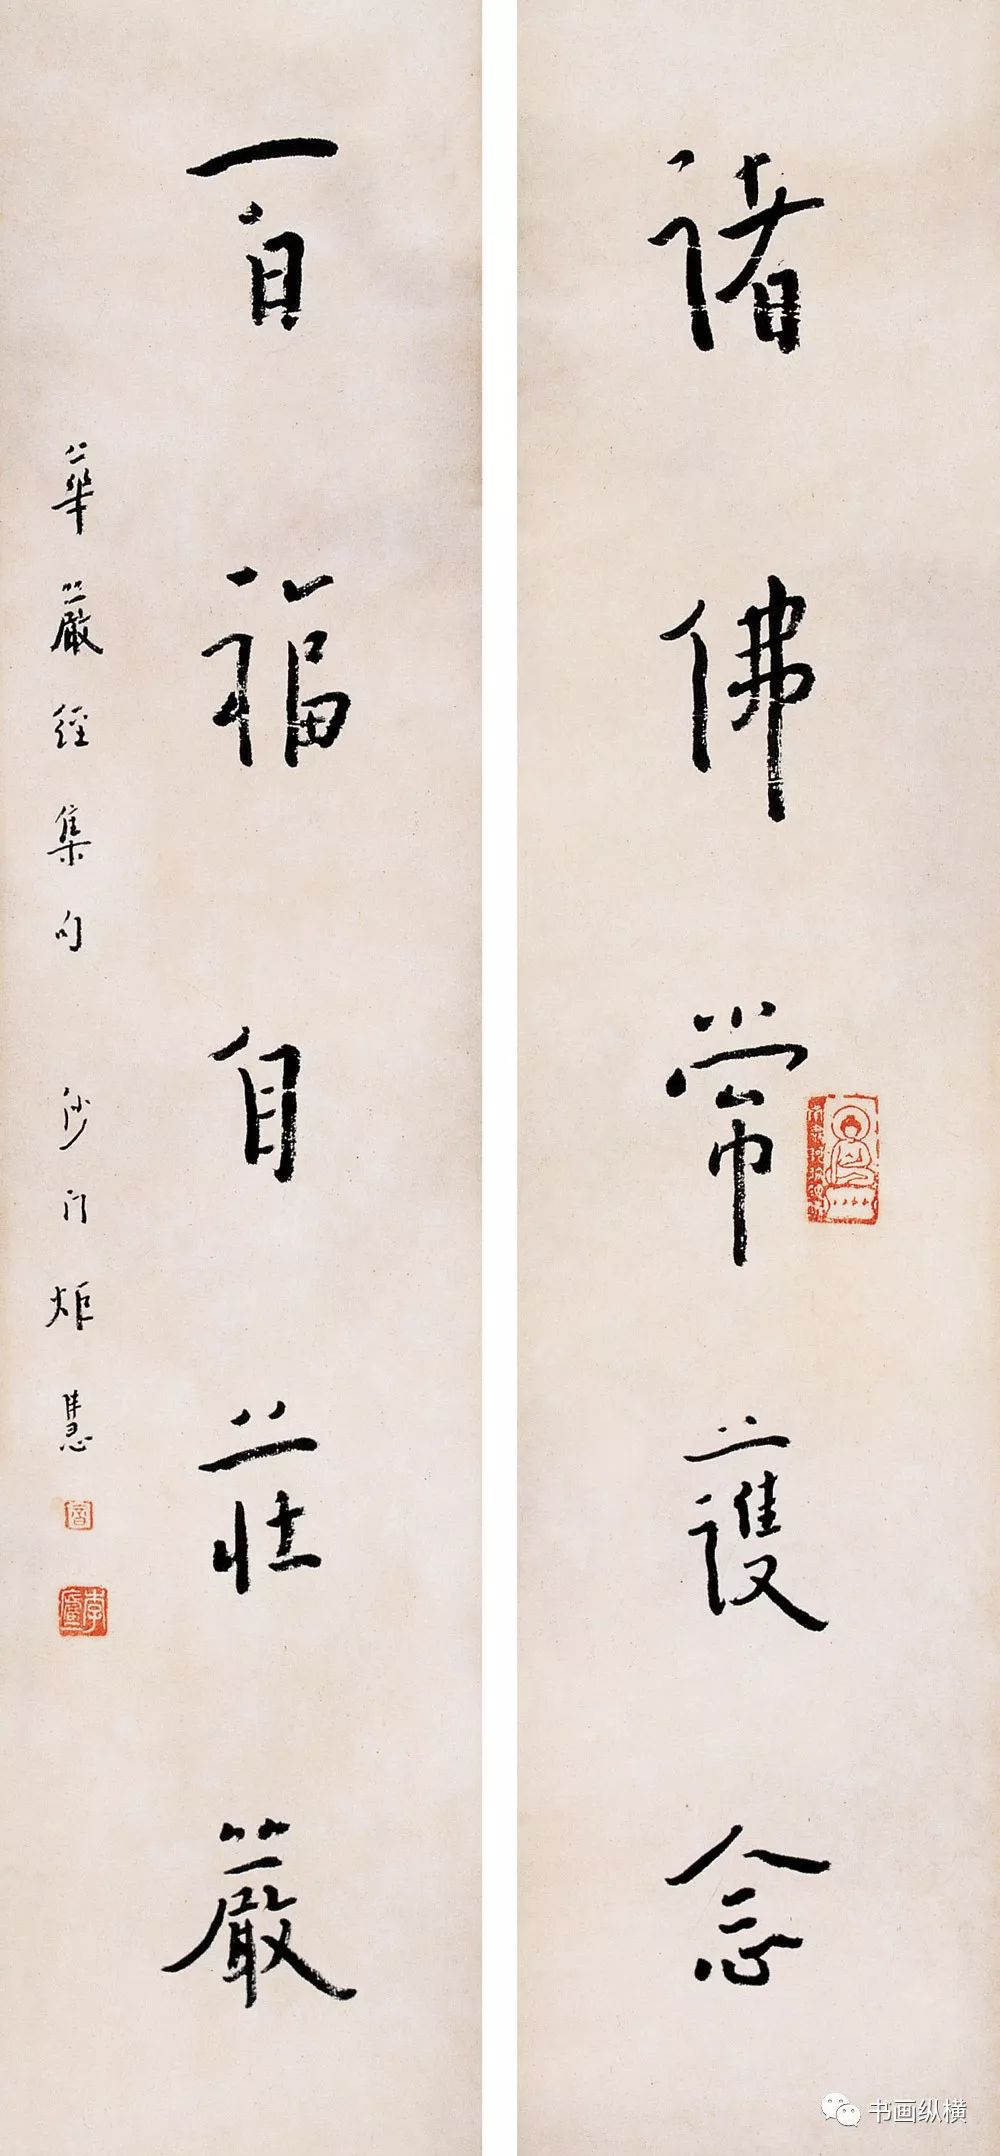 諸佛常護念
百福自莊嚴
華嚴經集句 沙门炬慧
书画纵横